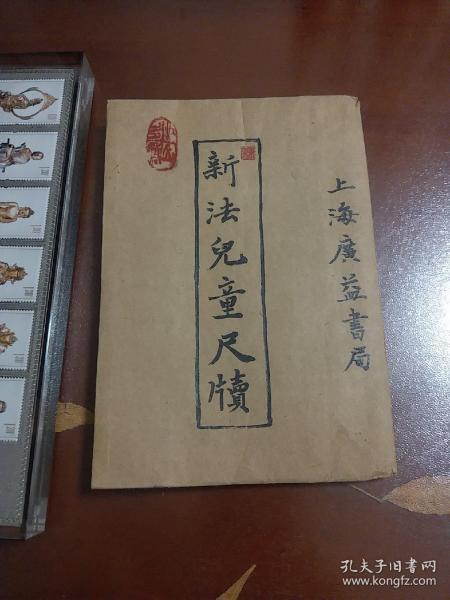 上海廣益書局
新法兒童尺牘
孔夫子旧书网
www.kongfz.com